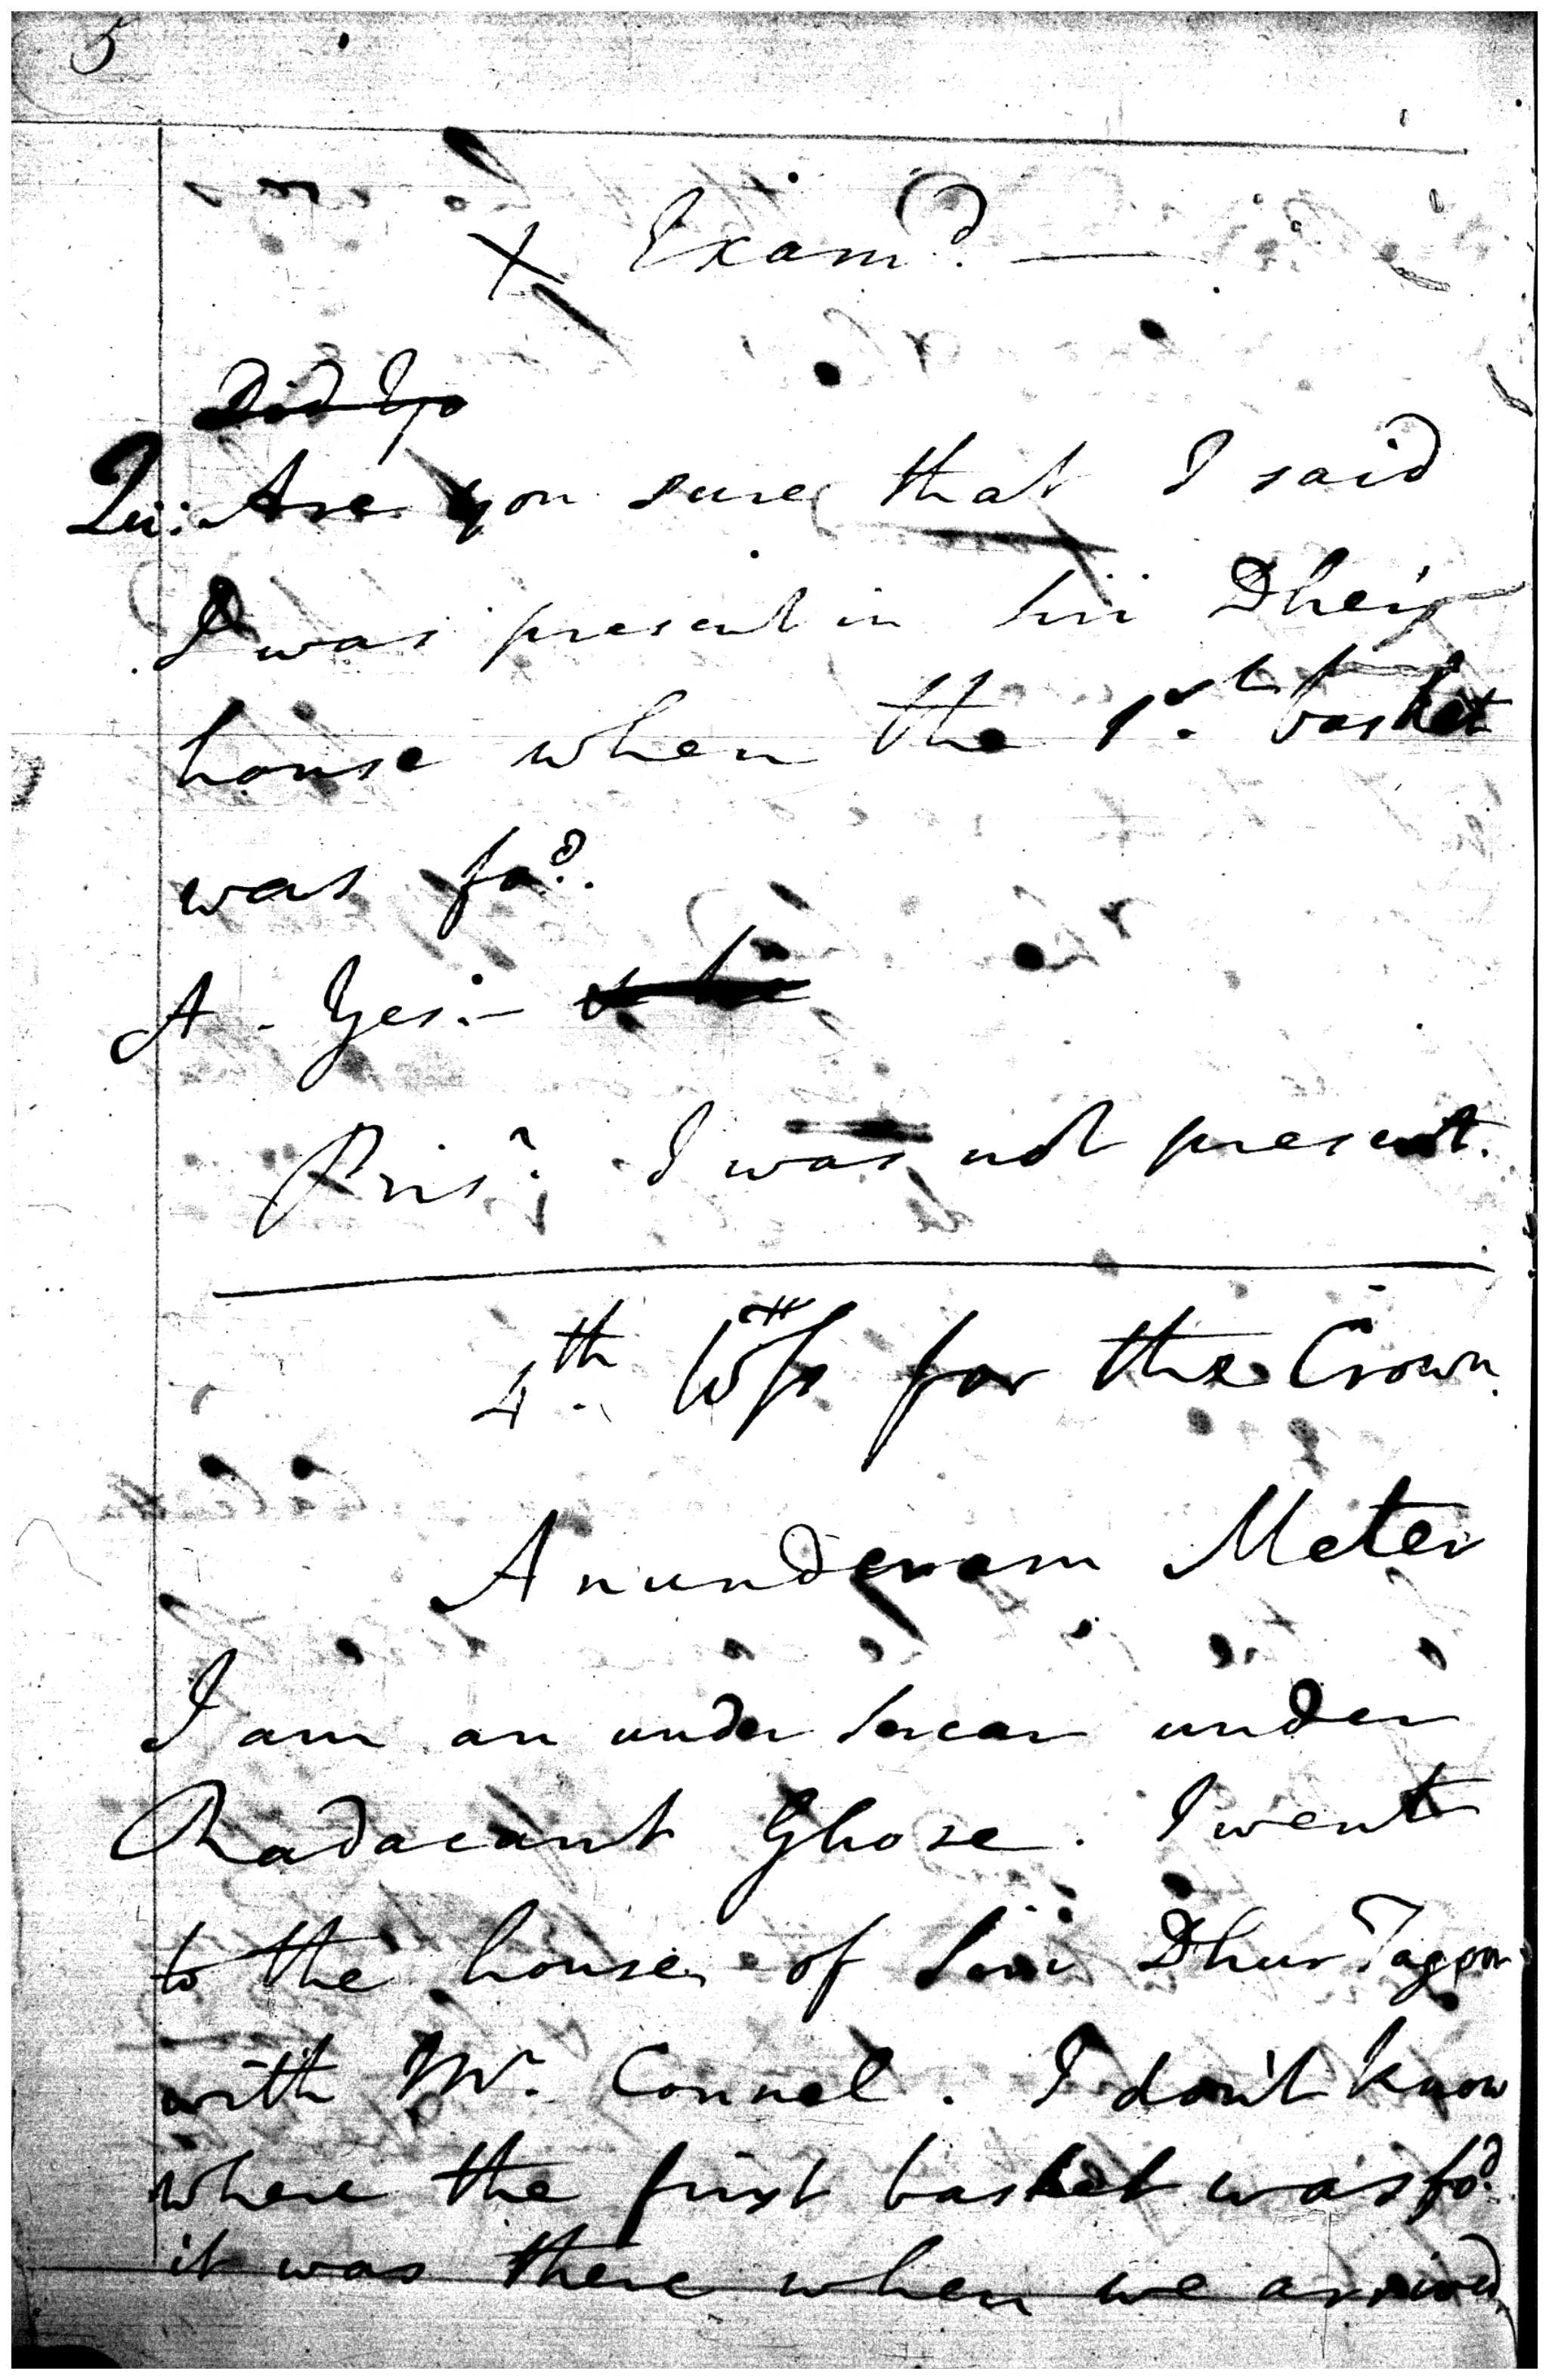 5
X Exam^d. —
Did Yo
Qu: Are you sure that I said
I was present in Siri Dher's
house when the 1^st. basket
was fo^d.
A - Yes. -
Pris^r. I was not present.
4^th. W^tss for the Crown.
Anunderam Meter
I am an under sercar under
Radacant Ghose. I went
to the house of Siri Dhur Tagoor
with Mr. Connel. I don't know
where the first basket was fo^d.
it was there when we arrived